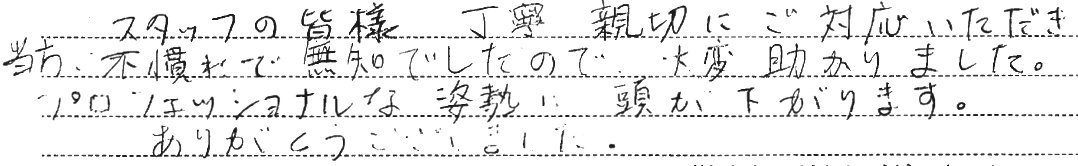 スタッフの皆様 丁寧 親切にご対応いただき
当方、不慣れで無知でしたので、大変助かりました。
プロフェッショナルな姿勢に 頭が下がります。
ありがとうございました。